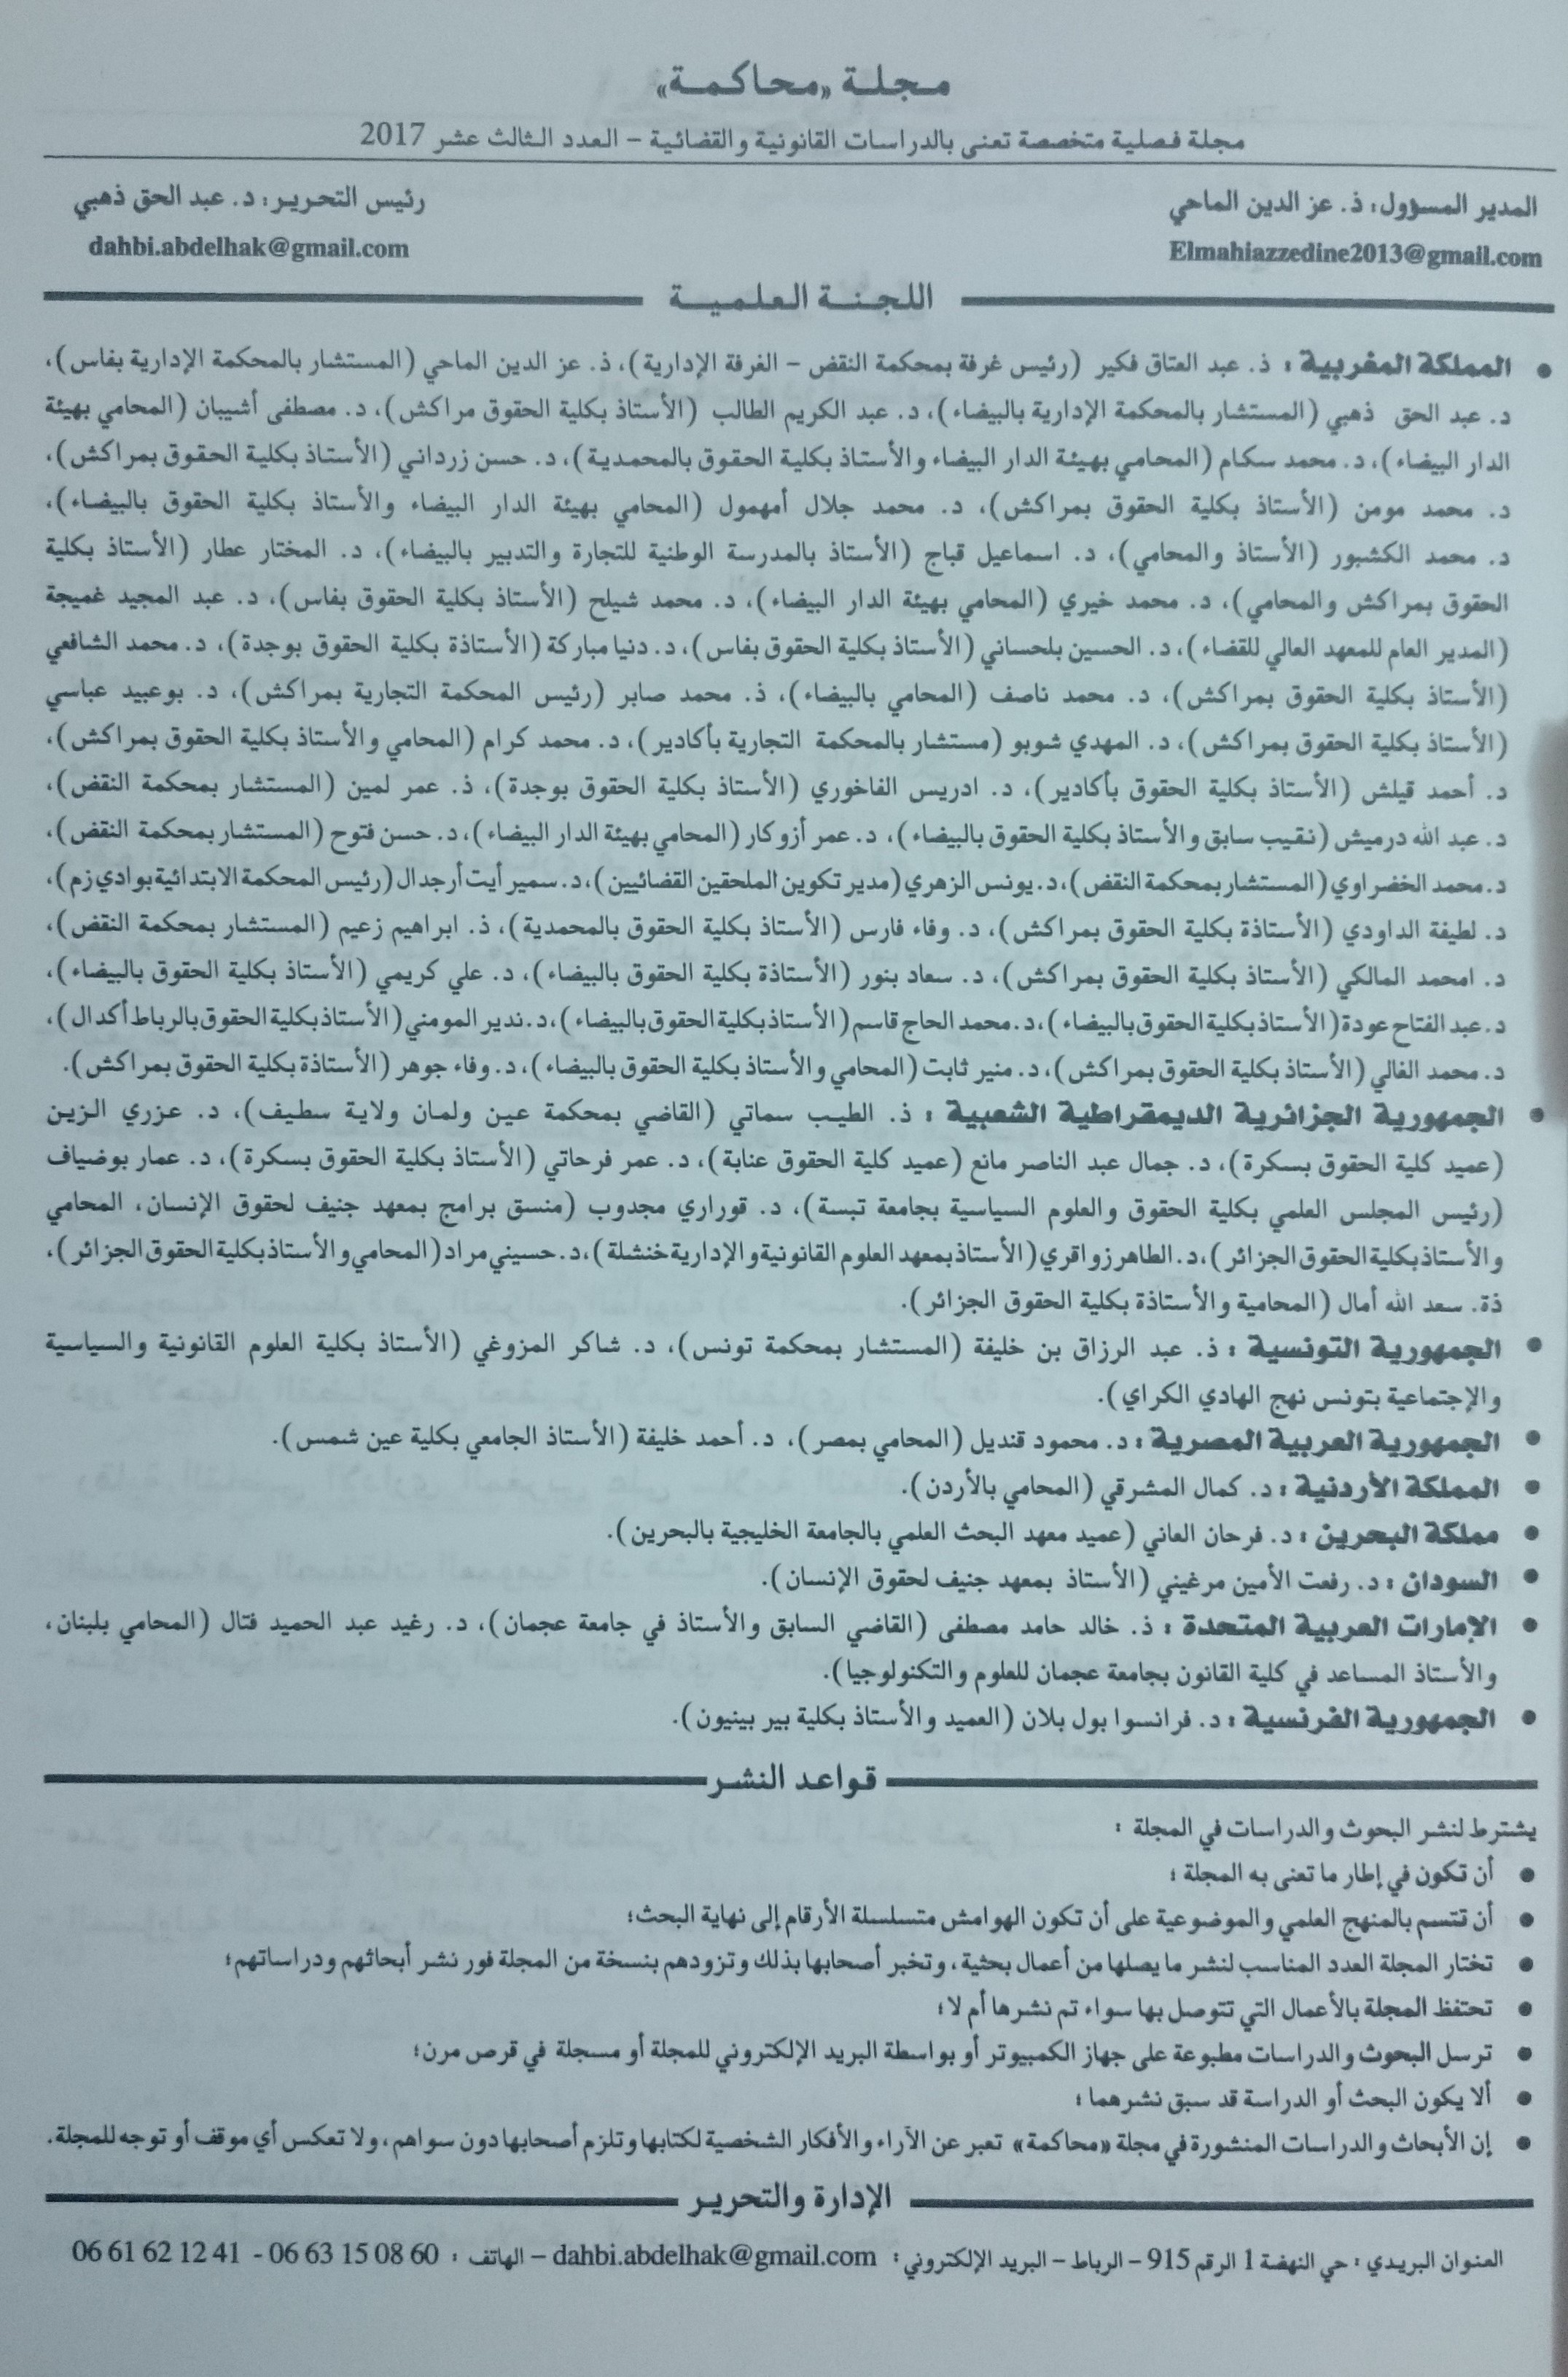 مجلة «محاكمة»
مجلة فصلية متخصصة تعنى بالدراسات القانونية والقضائية – العدد الثالث عشر 2017
المدير المسؤول: ذ. عز الدين الماحي
Elmahiazzedine2013@gmail.com
رئيس التحرير: د. عبد الحق ذهبي
dahbi.abdelhak@gmail.com
اللجنة العلمية
• المملكة المغربية : ذ. عبد العتاق فكير (رئيس غرفة بمحكمة النقض – الغرفة الإدارية)، ذ. عز الدين الماحي (المستشار بالمحكمة الإدارية بفاس)،
د. عبد الحق ذهبي (المستشار بالمحكمة الإدارية بالبيضاء)، د. عبد الكريم الطالب (الأستاذ بكلية الحقوق مراكش)، د. مصطفى أشيبان (المحامي بهيئة
الدار البيضاء)، د. محمد سكام (المحامي بهيئة الدار البيضاء والأستاذ بكلية الحقوق بالمحمدية)، د. حسن زرداني (الأستاذ بكلية الحقوق بمراكش)،
د. محمد مومن (الأستاذ بكلية الحقوق بمراكش)، د. محمد جلال أمهمول (المحامي بهيئة الدار البيضاء والأستاذ بكلية الحقوق بالبيضاء)،
د. محمد الكشبور (الأستاذ والمحامي)، د. اسماعيل قباج (الأستاذ بالمدرسة الوطنية للتجارة والتدبير بالبيضاء)، د. المختار عطار (الأستاذ بكلية
الحقوق بمراكش والمحامي)، د. محمد خيري (المحامي بهيئة الدار البيضاء)، د. محمد شيلح (الأستاذ بكلية الحقوق بفاس)، د. عبد المجيد غميجة
(المدير العام للمعهد العالي للقضاء)، د. الحسين بلحساني (الأستاذ بكلية الحقوق بفاس)، د. دنيا مباركة (الأستاذة بكلية الحقوق بوجدة)، د. محمد الشافعي
(الأستاذ بكلية الحقوق بمراكش)، د. محمد ناصف (المحامي بالبيضاء)، ذ. محمد صابر (رئيس المحكمة التجارية بمراكش)، د. بوعبيد عباسي
(الأستاذ بكلية الحقوق بمراكش)، د. المهدي شوبو (مستشار بالمحكمة التجارية بأكادير)، د. محمد كرام (المحامي والأستاذ بكلية الحقوق بمراكش)،
د. أحمد قيلش (الأستاذ بكلية الحقوق بأكادير)، د. ادريس الفاخوري (الأستاذ بكلية الحقوق بوجدة)، ذ. عمر لمين (المستشار بمحكمة النقض)،
د. عبد الله درميش (نقيب سابق والأستاذ بكلية الحقوق بالبيضاء)، د. عمر أزوكار (المحامي بهيئة الدار البيضاء)، د. حسن فتوح (المستشار بمحكمة النقض)،
د. محمد الخضراوي (المستشار بمحكمة النقض)، د. يونس الزهري (مدير تكوين الملحقين القضائيين)، د. سمير أيت أرجدال (رئيس المحكمة الابتدائية بوادي زم)،
د. لطيفة الداودي (الأستاذة بكلية الحقوق بمراكش)، د. وفاء فارس (الأستاذ بكلية الحقوق بالمحمدية)، ذ. ابراهيم زعيم (المستشار بمحكمة النقض)،
د. امحمد المالكي (الأستاذ بكلية الحقوق بمراكش)، د. سعاد بنور (الأستاذة بكلية الحقوق بالبيضاء)، د. علي كريمي (الأستاذ بكلية الحقوق بالبيضاء)،
د. عبد الفتاح عودة (الأستاذ بكلية الحقوق بالبيضاء)، د. محمد الحاج قاسم (الأستاذ بكلية الحقوق بالبيضاء)، د. ندير المومني (الأستاذ بكلية الحقوق بالرباط أكدال)،
د. محمد الغالي (الأستاذ بكلية الحقوق بمراكش)، د. منير ثابت (المحامي والأستاذ بكلية الحقوق بالبيضاء)، د. وفاء جوهر (الأستاذة بكلية الحقوق بمراكش).
• الجمهورية الجزائرية الديمقراطية الشعبية : ذ. الطيب سماتي (القاضي بمحكمة عين ولمان ولاية سطيف)، د. عزري الزين
(عميد كلية الحقوق بسكرة)، د. جمال عبد الناصر مانع (عميد كلية الحقوق عنابة)، د. عمر فرحاتي (الأستاذ بكلية الحقوق بسكرة)، د. عمار بوضياف
(رئيس المجلس العلمي بكلية الحقوق والعلوم السياسية بجامعة تبسة)، د. قوراري مجدوب (منسق برامج بمعهد جنيف لحقوق الإنسان، المحامي
والأستاذ بكلية الحقوق الجزائر)، د. الطاهر زواقري (الأستاذ بمعهد العلوم القانونية والإدارية خنشلة)، د. حسيني مراد (المحامي والأستاذ بكلية الحقوق الجزائر)،
ذة. سعد الله أمال (المحامية والأستاذة بكلية الحقوق الجزائر).
• الجمهورية التونسية : ذ. عبد الرزاق بن خليفة (المستشار بمحكمة تونس)، د. شاكر المزوغي (الأستاذ بكلية العلوم القانونية والسياسية
والإجتماعية بتونس نهج الهادي الكراي).
• الجمهورية العربية المصرية : د. محمود قنديل (المحامي بمصر)، د. أحمد خليفة (الأستاذ الجامعي بكلية عين شمس).
• المملكة الأردنية : د. كمال المشرقي (المحامي بالأردن).
• مملكة البحرين : د. فرحان العاني (عميد معهد البحث العلمي بالجامعة الخليجية بالبحرين).
• السودان : د. رفعت الأمين مرغيني (الأستاذ بمعهد جنيف لحقوق الإنسان).
• الإمارات العربية المتحدة : ذ. خالد حامد مصطفى (القاضي السابق والأستاذ في جامعة عجمان)، د. رغيد عبد الحميد فتال (المحامي بلبنان،
والأستاذ المساعد في كلية القانون بجامعة عجمان للعلوم والتكنولوجيا).
• الجمهورية الفرنسية : د. فرانسوا بول بلان (العميد والأستاذ بكلية بير بينيون).
قواعد النشر
يشترط لنشر البحوث والدراسات في المجلة :
• أن تكون في إطار ما تعنى به المجلة ؛
• أن تتسم بالمنهج العلمي والموضوعية على أن تكون الهوامش متسلسلة الأرقام إلى نهاية البحث؛
• تختار المجلة العدد المناسب لنشر ما يصلها من أعمال بحثية، وتخبر أصحابها بذلك وتزودهم بنسخة من المجلة فور نشر أبحاثهم ودراساتهم؛
• تحتفظ المجلة بالأعمال التي تتوصل بها سواء تم نشرها أم لا؛
• ترسل البحوث والدراسات مطبوعة على جهاز الكمبيوتر أو بواسطة البريد الإلكتروني للمجلة أو مسجلة في قرص مرن؛
• ألا يكون البحث أو الدراسة قد سبق نشرهما ؛
• إن الأبحاث والدراسات المنشورة في مجلة «محاكمة» تعبر عن الآراء والأفكار الشخصية لكتابها وتلزم أصحابها دون سواهم، ولا تعكس أي موقف أو توجه للمجلة.
الإدارة والتحرير
العنوان البريدي : حي النهضة 1 الرقم 915 – الرباط – البريد الإلكتروني : dahbi.abdelhak@gmail.com – الهاتف : 06 63 15 08 60 - 06 61 62 12 41